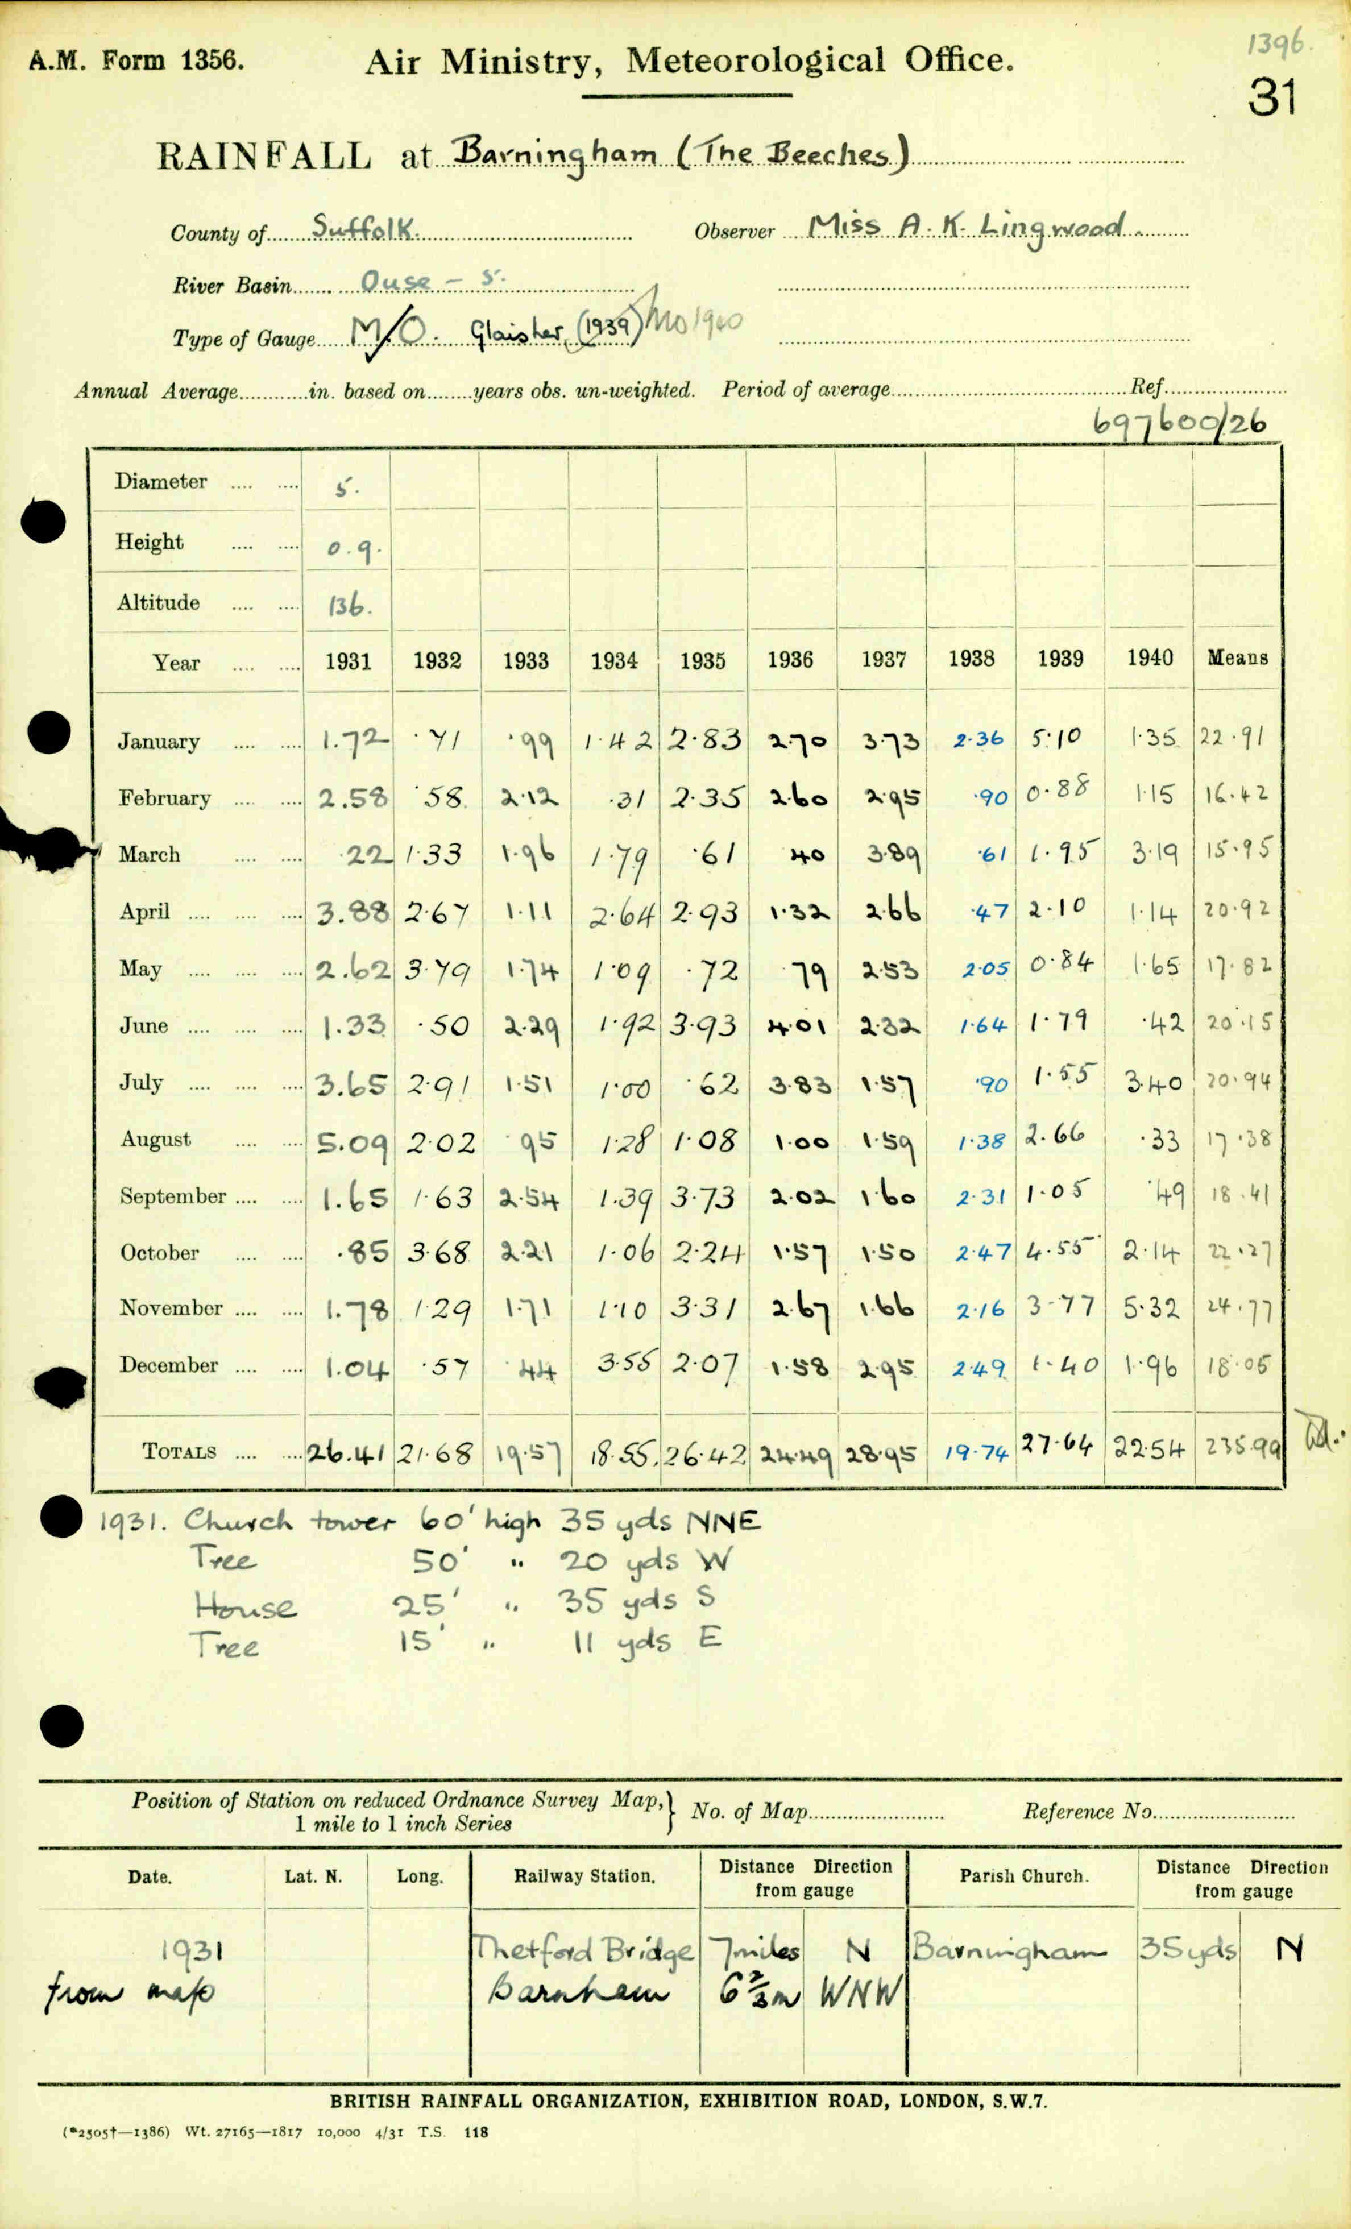 1396.
A.M. Form 1356. Air Ministry, Meteorological Office.
31
RAINFALL at Barningham (The Beeches)
County of Suffolk. Observer Miss A. K. Lingwood.
River Basin Ouse – 5.
Type of Gauge M.O. Glaisher (1939) MO 1940
Annual Average in. based on years obs. un-weighted. Period of average Ref.
697600/26
Diameter 5.
Height 0.9.
Altitude 136.
Year 1931 1932 1933 1934 1935 1936 1937 1938 1939 1940 Means
January 1.72 .71 .99 1.42 2.83 2.70 3.73 2.36 5.10 1.35 22.91
February 2.58 .58 2.12 .31 2.35 2.60 2.95 .90 0.88 1.15 16.42
March .22 1.33 1.96 1.79 .61 40 3.89 .61 1.95 3.19 15.95
April 3.88 2.67 1.11 2.64 2.93 1.32 2.66 .47 2.10 1.14 20.92
May 2.62 3.79 1.74 1.09 .72 .79 2.53 2.05 0.84 1.65 17.82
June 1.33 .50 2.29 1.92 3.93 4.01 2.32 1.64 1.79 .42 20.15
July 3.65 2.91 1.51 1.00 .62 3.83 1.57 .90 1.55 3.40 20.94
August 5.09 2.02 .95 1.28 1.08 1.00 1.59 1.38 2.66 .33 17.38
September 1.65 1.63 2.54 1.39 3.73 2.02 1.60 2.31 1.05 .49 18.41
October .85 3.68 2.21 1.06 2.24 1.57 1.50 2.47 4.55 2.14 22.27
November 1.78 1.29 1.71 1.10 3.31 2.67 1.66 2.16 3.77 5.32 24.77
December 1.04 .57 .44 3.55 2.07 1.58 2.95 2.49 1.40 1.96 18.05
TOTALS 26.41 21.68 19.57 18.55 26.42 24.49 28.95 19.74 27.64 22.54 235.99
1931. Church tower 60' high 35 yds NNE
Tree 50' " 20 yds W
House 25' " 35 yds S
Tree 15' " 11 yds E
Position of Station on reduced Ordnance Survey Map, 1 mile to 1 inch Series } No. of Map Reference No.
Date. Lat. N. Long. Railway Station. Distance Direction from gauge Parish Church. Distance Direction from gauge
1931 Thetford Bridge 7 miles N Barningham 35 yds N
from map Barnham 6 2/3 m WNW
BRITISH RAINFALL ORGANIZATION, EXHIBITION ROAD, LONDON, S.W.7.
(*2505†—1386) Wt. 27165—1817 10,000 4/31 T.S. 118